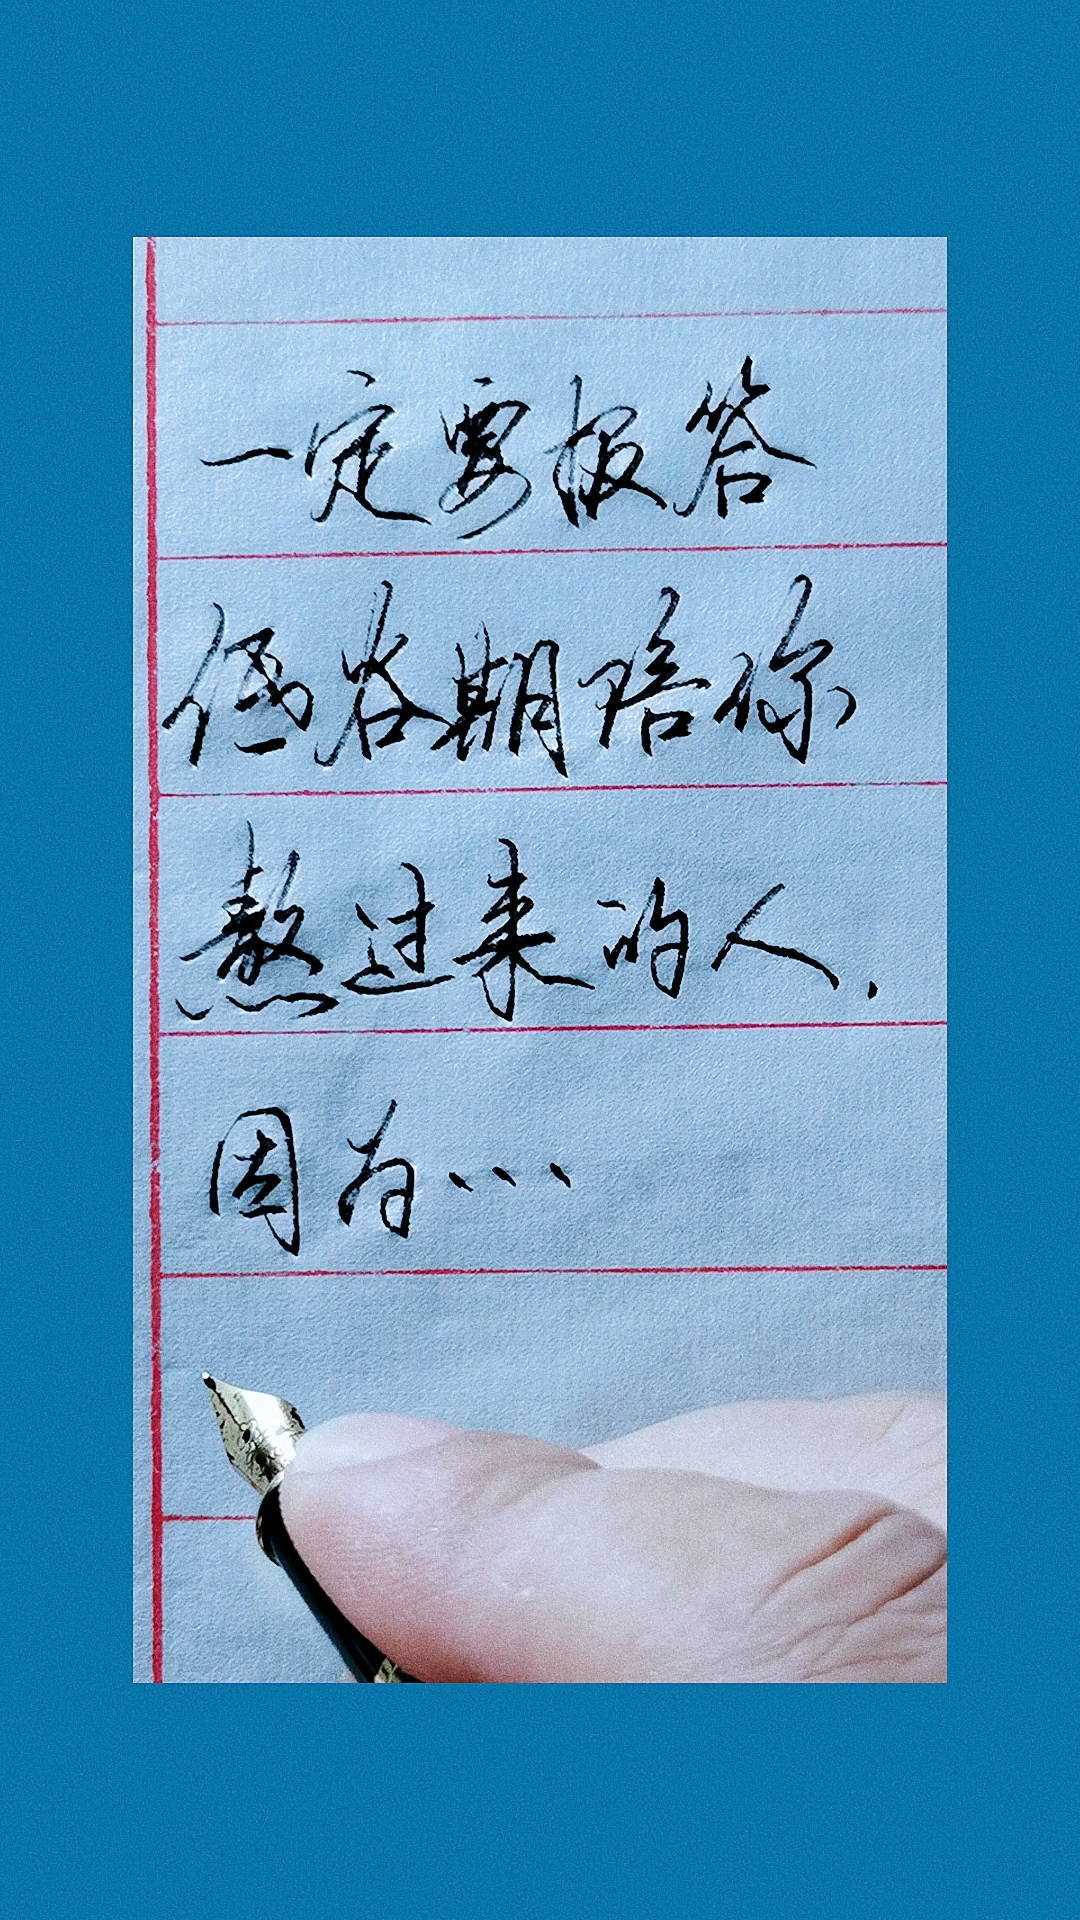 一定要报答
低谷期陪你
熬过来的人.
因为...